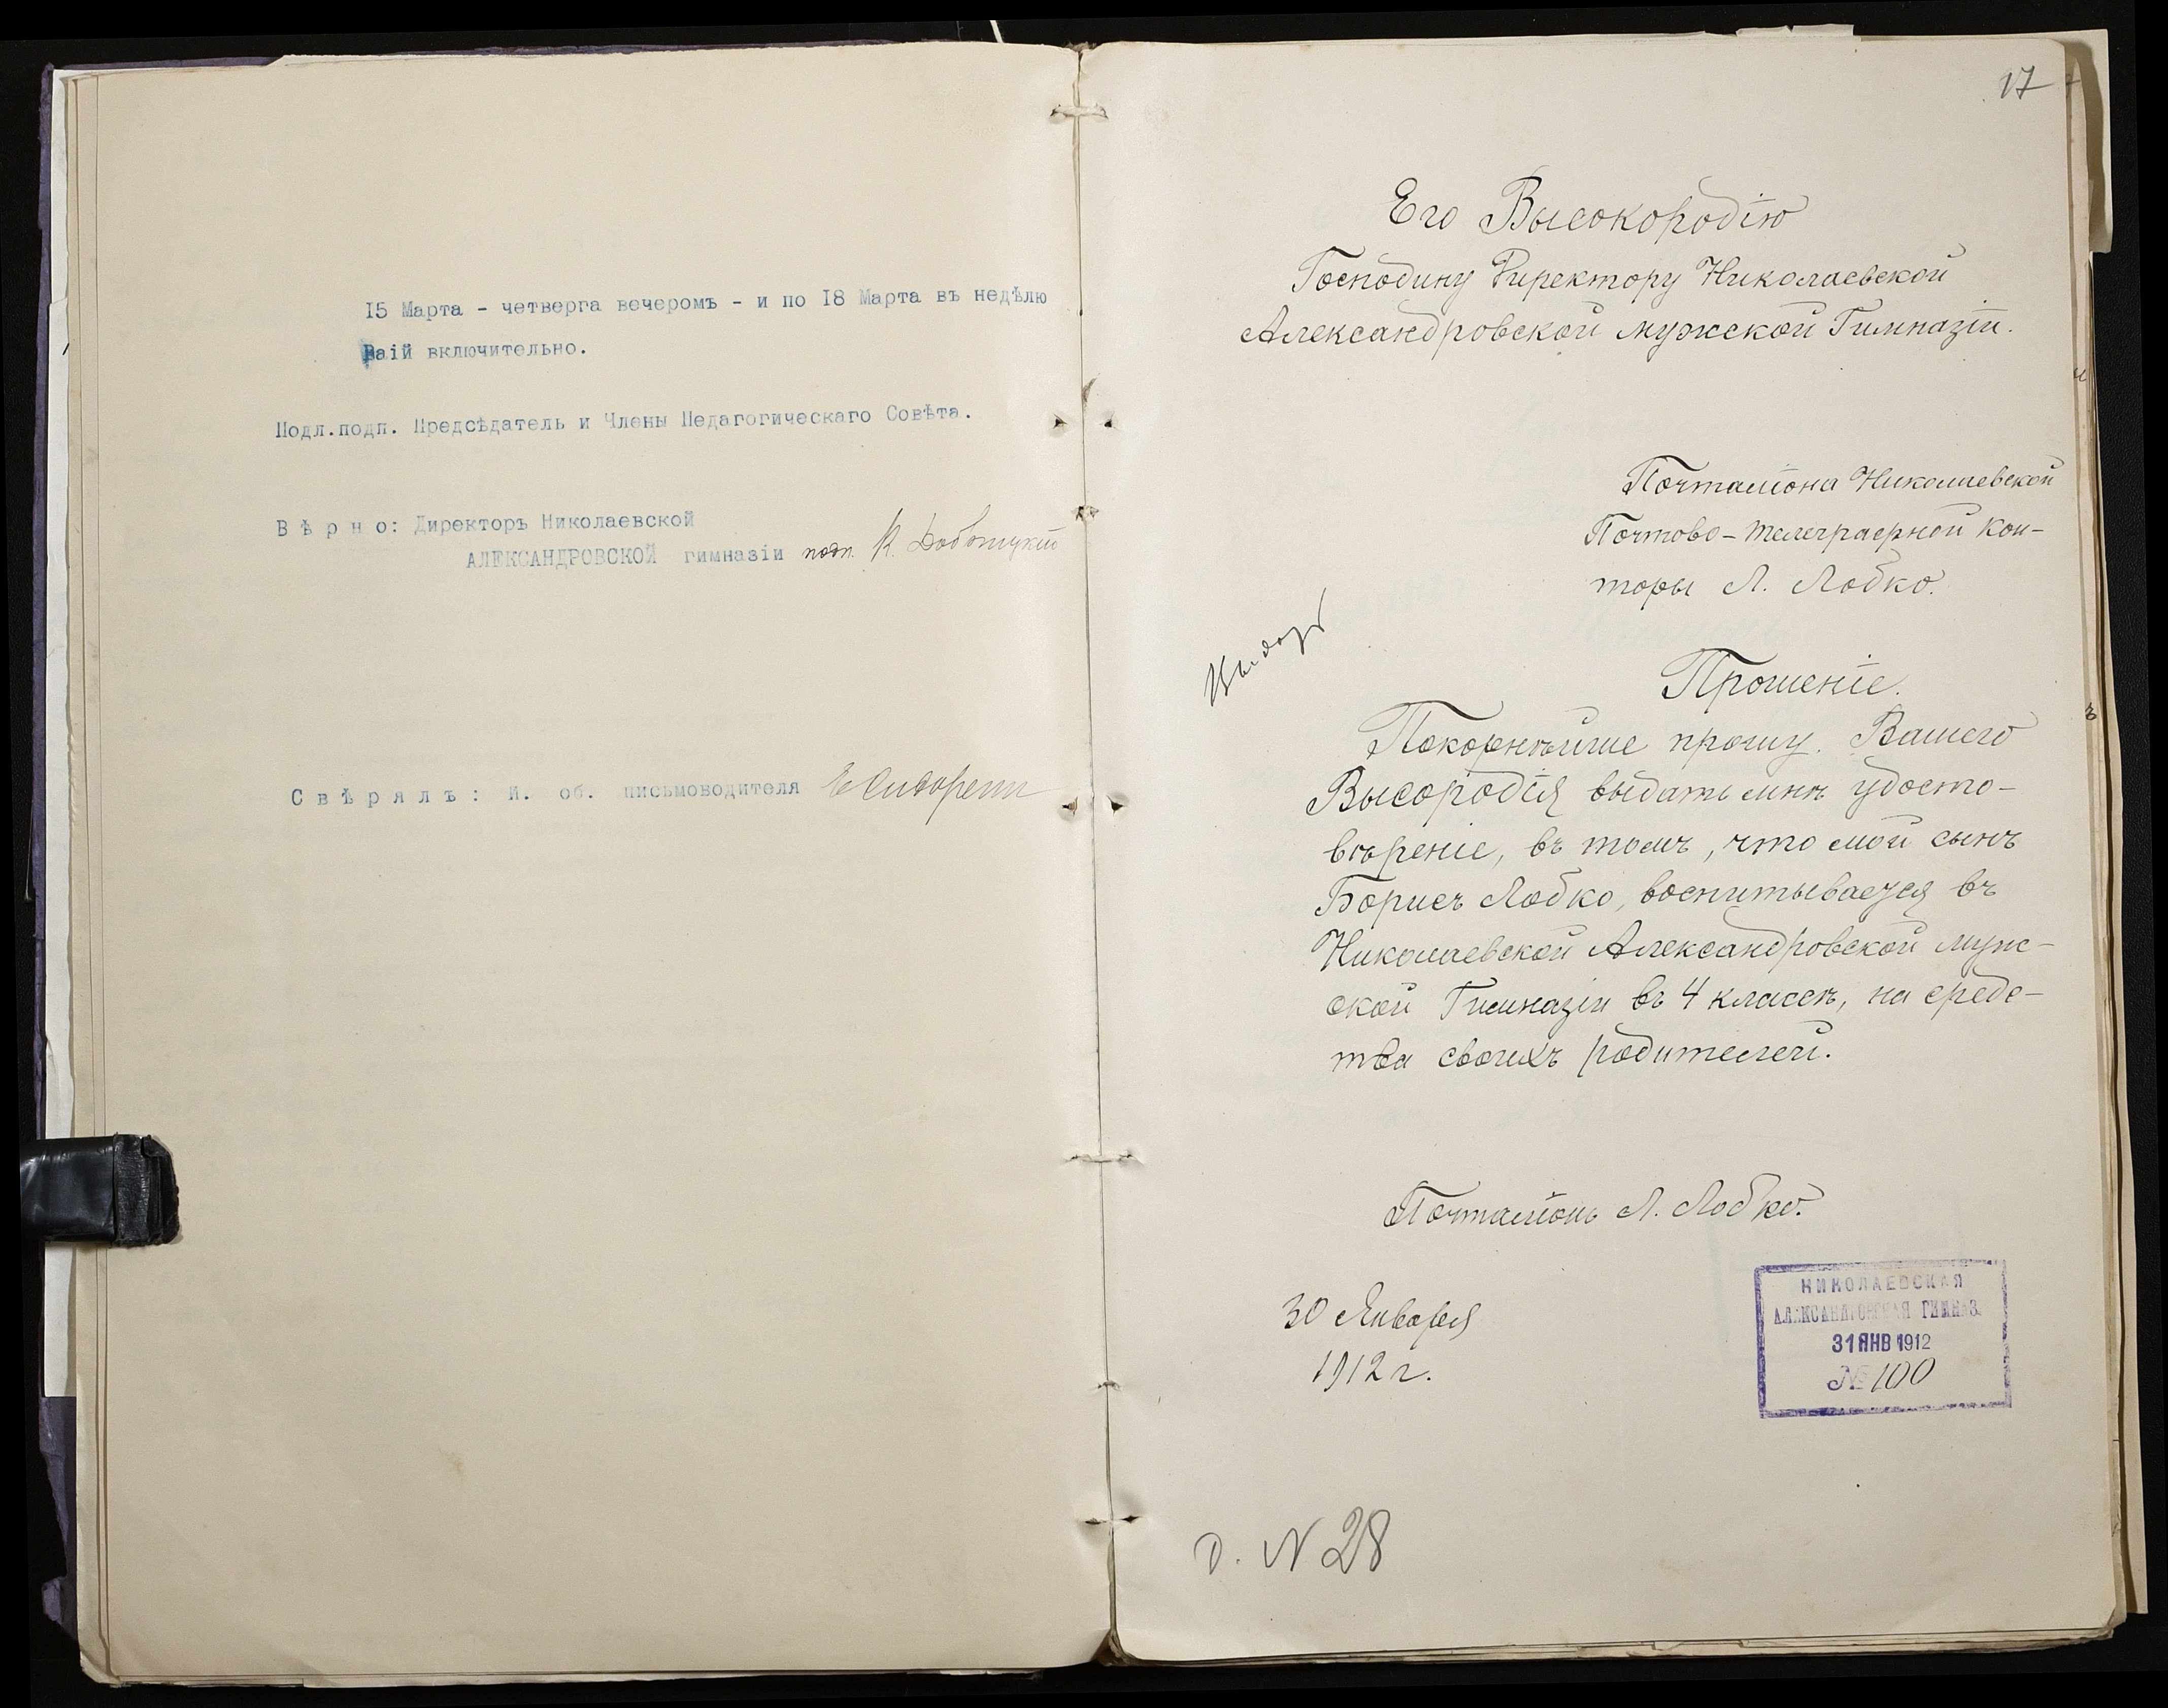 15 Марта - четверга вечеромъ - и по 18 Марта въ недѣлю
Ваiй включительно.
Подл.подп. Предсѣдатель и Члены Педагогическаго Совѣта.
В ѣ р н о: Директоръ Николаевской
АЛЕКСАНДРОВСКОЙ гимназiи подп. К.
С в ѣ р я л ъ : И. об. письмоводителя
17
Его Высокородiю
Господину Директору Николаевской
Александровской мужской Гимназiи.
Почталiона Николаевской
Почтово-телеграфной кон-
торы Л. Лобко.
Прошенiе.
Покорнѣйше прошу. Вашего
Высородiя выдать мнѣ удосто-
вѣренiе, въ томъ, что мой сынъ
Борисъ Лобко, воспитывается въ
Николаевской Александровской муж-
ской Гимназiи въ 4 классѣ, на средс-
тва своихъ родителей.
Почталiонъ Л. Лобко.
30 Января
1912 г.
НИКОЛАЕВСКАЯ
АЛЕКСАНДРОВСКАЯ ГИМНАЗ.
31 ЯНВ 1912
№ 100
Д. N 28